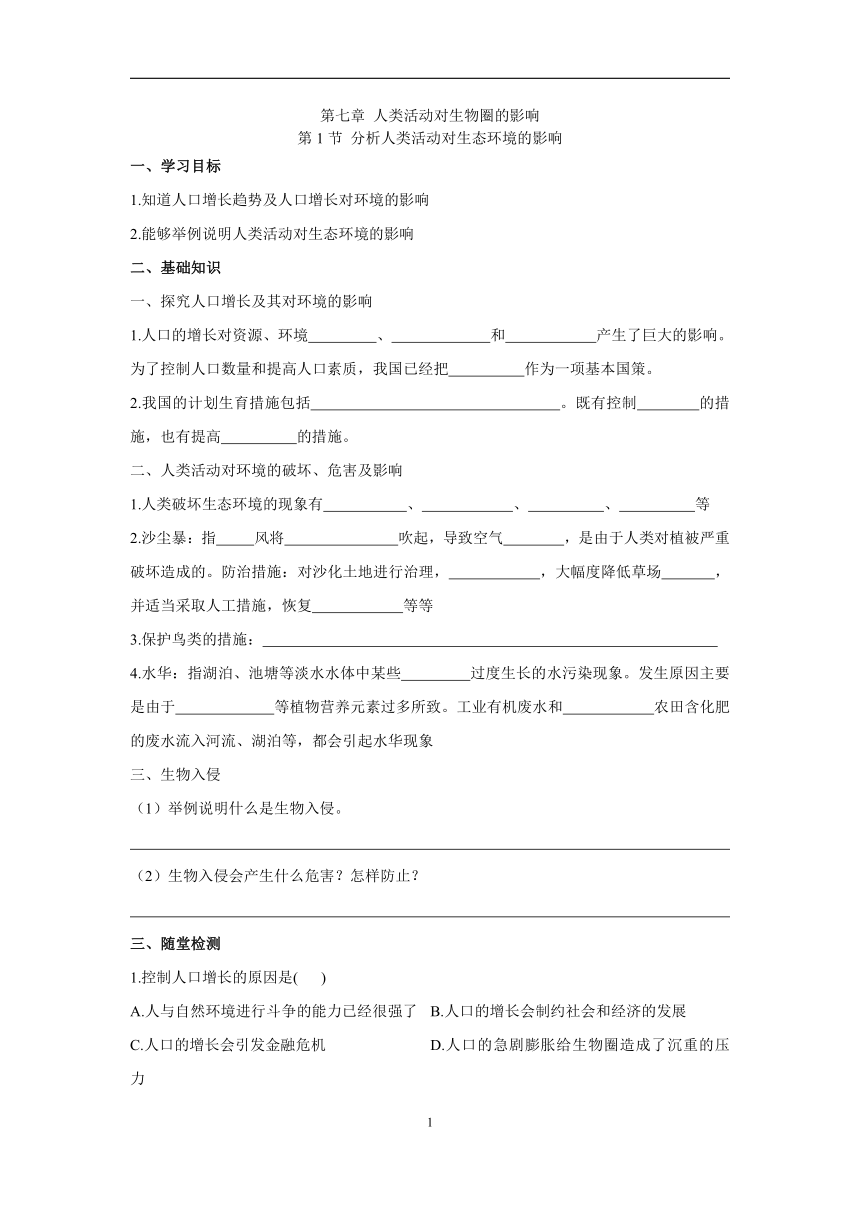 第七章 人类活动对生物圈的影响
第1节 分析人类活动对生态环境的影响
一、学习目标
1.知道人口增长趋势及人口增长对环境的影响
2.能够举例说明人类活动对生态环境的影响
二、基础知识
一、探究人口增长及其对环境的影响
1.人口的增长对资源、环境_________、_____________和____________产生了巨大的影响。
为了控制人口数量和提高人口素质，我国已经把__________作为一项基本国策。
2.我国的计划生育措施包括_________________________________。既有控制________的措
施，也有提高__________的措施。
二、人类活动对环境的破坏、危害及影响
1.人类破坏生态环境的现象有___________、____________、__________、__________等
2.沙尘暴：指_____风将_______________吹起，导致空气________，是由于人类对植被严重
破坏造成的。防治措施：对沙化土地进行治理，____________，大幅度降低草场_______，
并适当采取人工措施，恢复____________等等
3.保护鸟类的措施：____________________________________________________________
4.水华：指湖泊、池塘等淡水水体中某些_________过度生长的水污染现象。发生原因主要
是由于_____________等植物营养元素过多所致。工业有机废水和____________农田含化肥
的废水流入河流、湖泊等，都会引起水华现象
三、生物入侵
（1）举例说明什么是生物入侵。
（2）生物入侵会产生什么危害？怎样防止？
三、随堂检测
1.控制人口增长的原因是( )
A.人与自然环境进行斗争的能力已经很强了 B.人口的增长会制约社会和经济的发展
C.人口的增长会引发金融危机 D.人口的急剧膨胀给生物圈造成了沉重的压
力
1